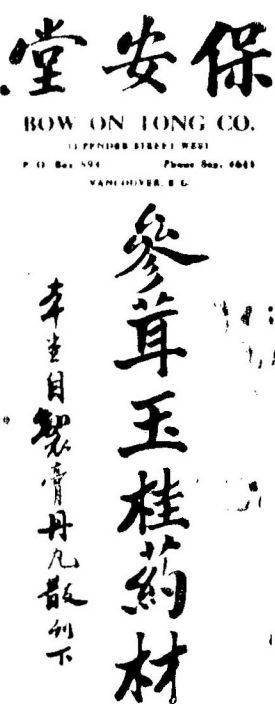 保安堂
BOW ON TONG CO.
PENDER STREET WEST
P O Box 894 Phone Sey.
VANCOUVER, B. C.
參茸玉桂葯材
本堂自製膏丹丸散列下